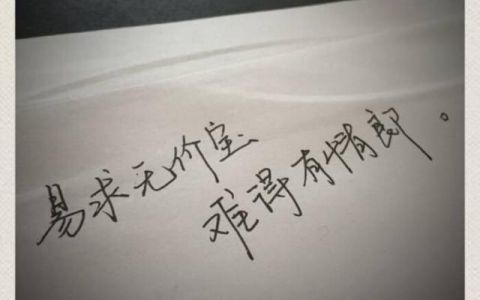 易求无价宝
难得有情郎。